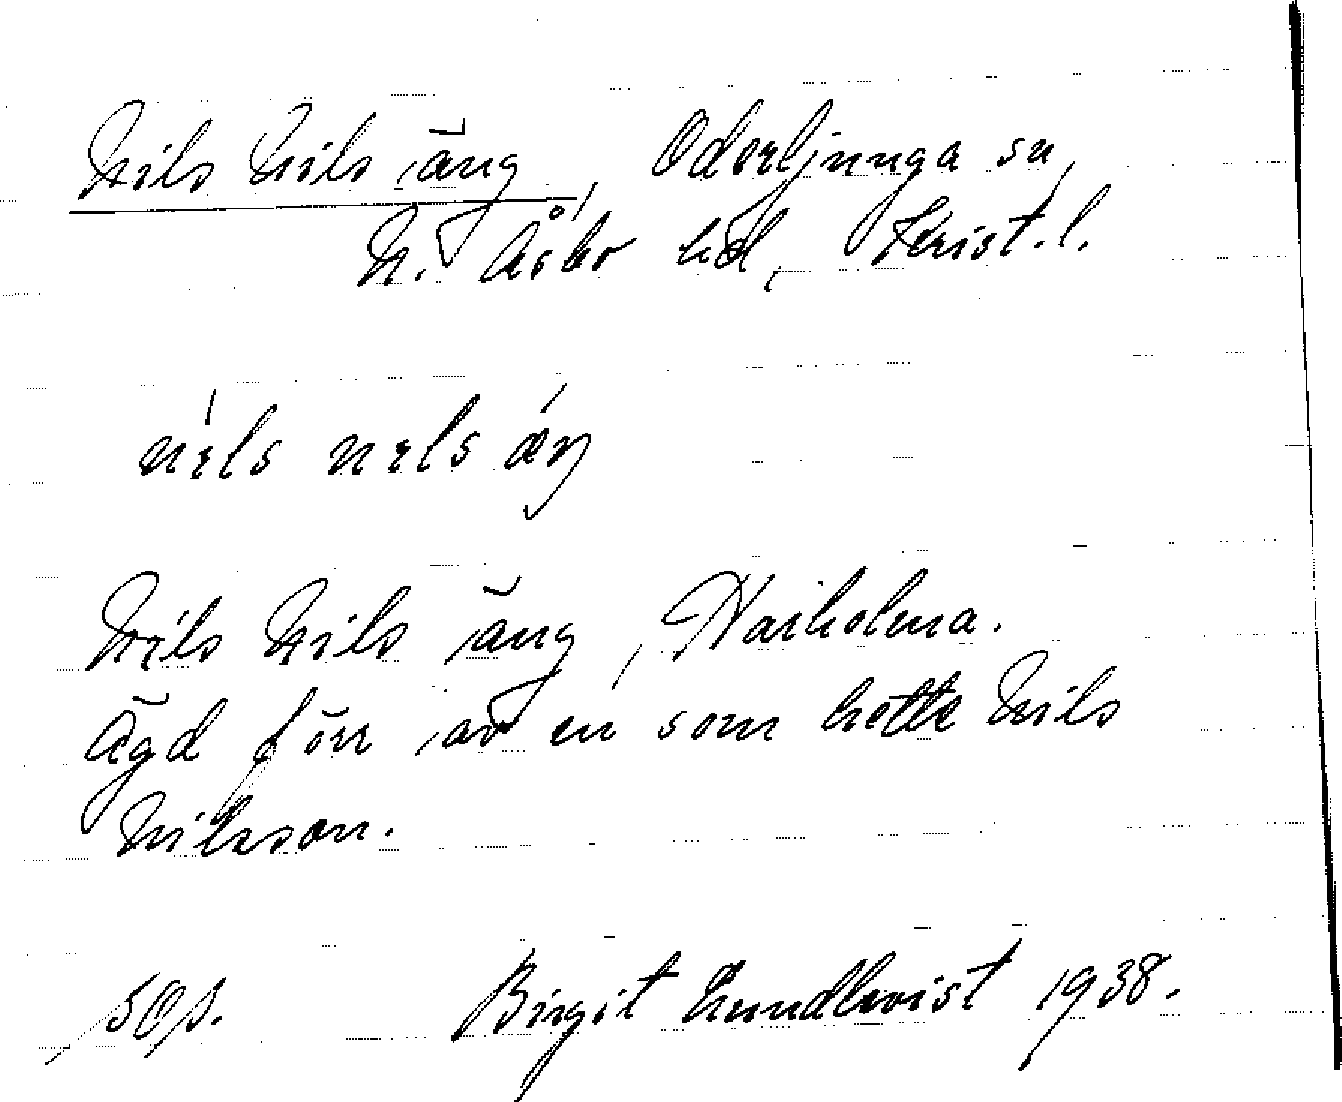 Nils Nils äng, Oderljunga sn,
N. Åsbo hd, Krist. l.
nils nils äŋ
Nils Nils äng, Harholma.
Ägd förr av en som hette Nils
Nilsson.
Birgit Lundkvist 1938.